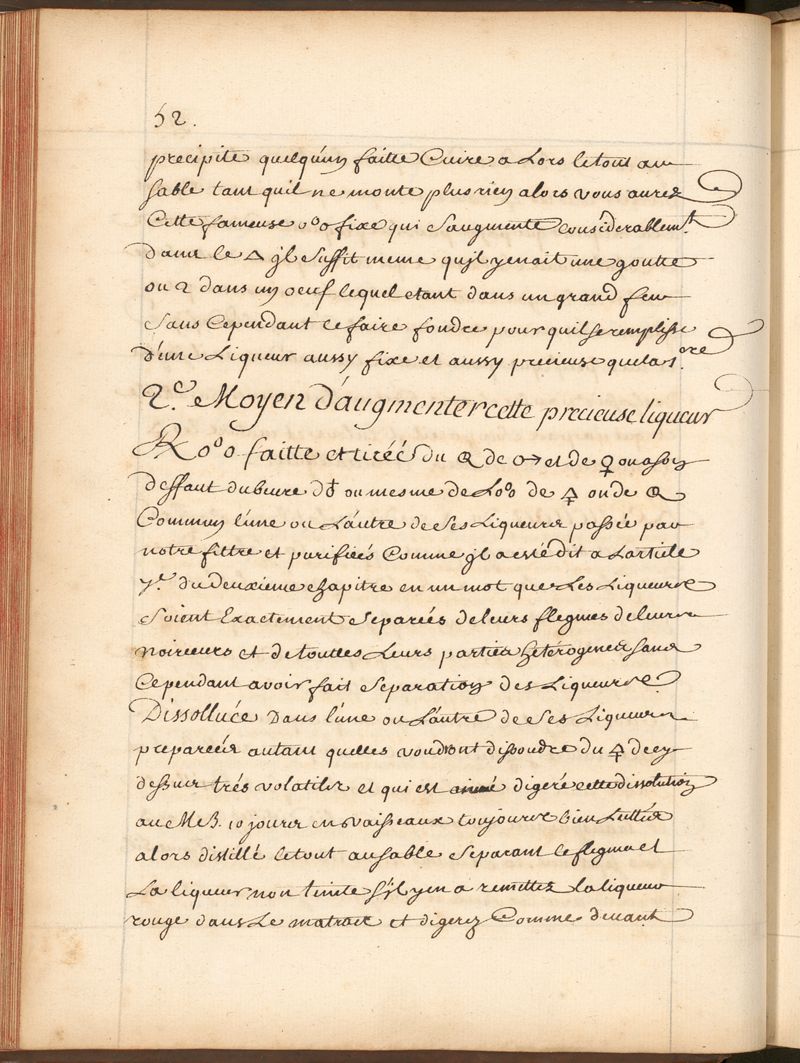 52.
precipite quelqu'un faitte Cuire a Lors le tout au
sable tant quil ne monte plus rien alors vous aurez
Cette fameuse o°o fixe qui s'augmente considerablem.t
dans le 🜂 jl suffit meme qujl yenait une goutte
ou 2 dans un oeuf lequel etant dans un grand feu
sans Cependant le faire fondre pour quil se remplisse
d'une Liqueur aussy fixe et aussy precieuse que la 1.ere
2.e Moyen d'augmenter cette precieuse liqueur
℞ o°o faitte et tiréé du de ♂ et de ♀ ou a son
deffaut du beure d♁ ou mesme de Lo°o de 🜍 ou de
Commun l'une ou L'autre de ses Liqueurs passée par
notre filtre et purifiéés Comme jl a esté dit a Larticle
7.e du deuxieme chapitre en un mot que Les Liqueurs
soient Exactement separéés de leurs flegmes de leurs
noirceurs et de touttes Leurs parties heterogenes sans
Cependant avoir fait separation des Liqueurs
Dissolluée dans l'une ou L'autre de ses Liqueurs
preparéés autant quelles voudront dissoudre du 🜍 de cy
dessus trés volatile et qui est animé digeré cette dissolution
au M.B. 10 jours en vaisseaux toujours bien Luttés
alors distillé le tout au sable separant le flegme et
La liqueur non teinte s'jl y en a remettez la liqueur
rouge dans Le matrats et digerez Comme devant